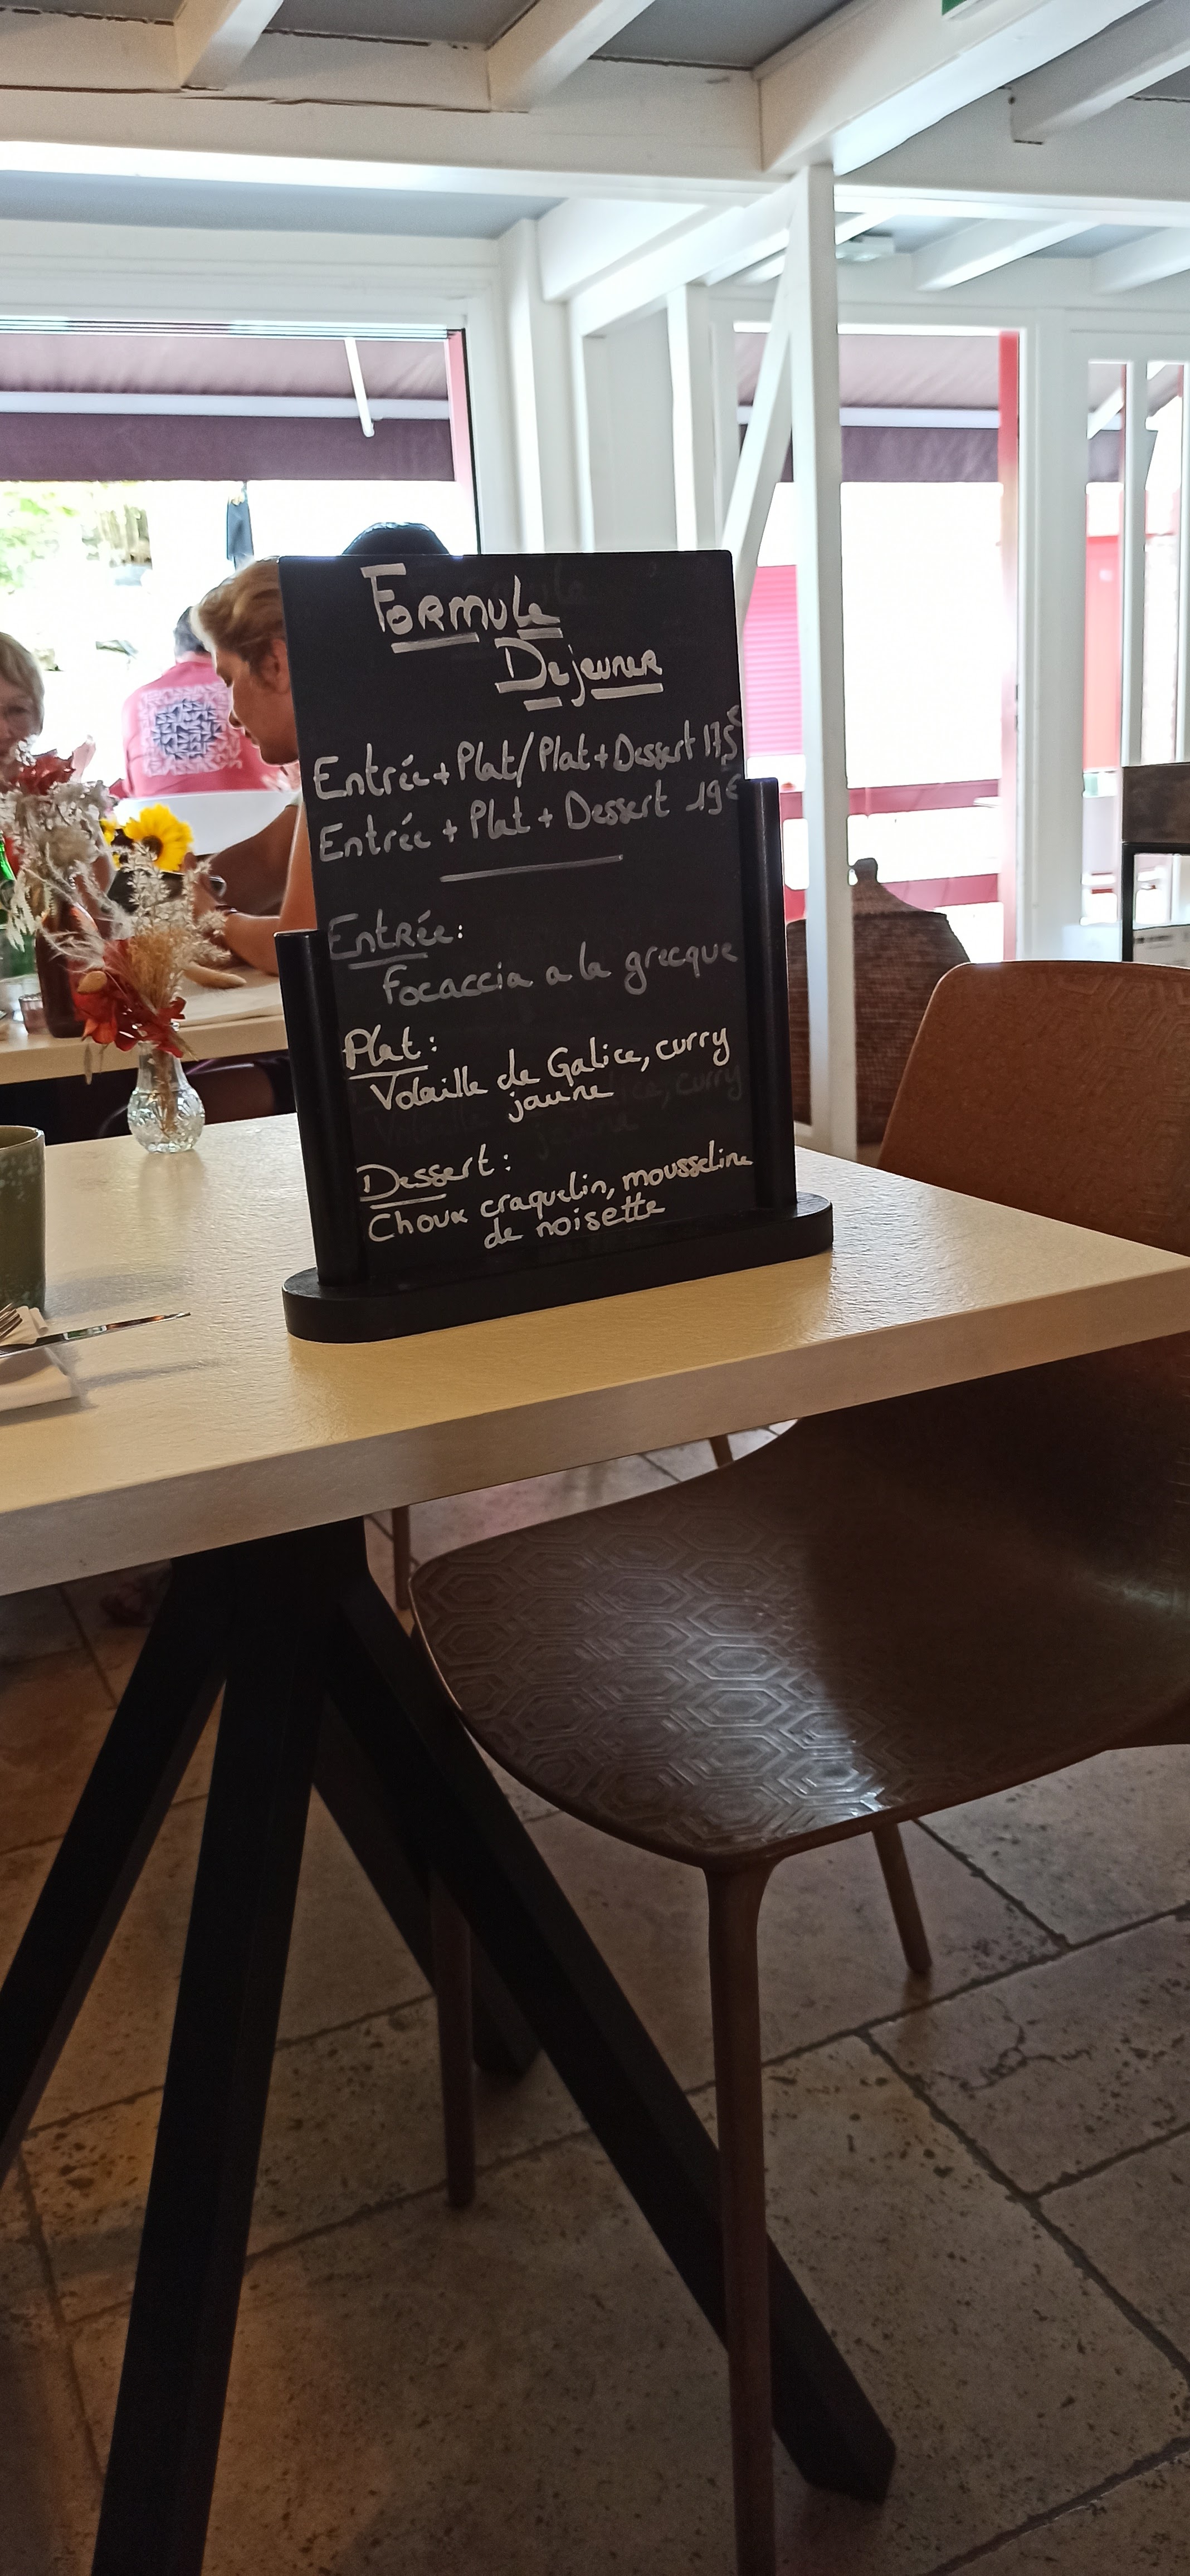 Formule
Dejeuner
Entrée + Plat / Plat + Dessert 17,5€
Entrée + Plat + Dessert 19€
Entrée:
Focaccia a la grecque
Plat:
Volaille de Galice, curry
jaune
Dessert:
Choux craquelin, mousseline
de noisette